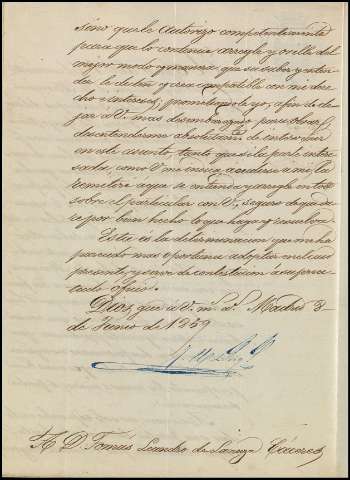 sino que le autorizo competentemente
para que lo continue arregle y orille del
mejor modo y manera que su saber y enten
der le dicten y crea compatible con mi dere
cho e interes; prometiendo yo, a fin de de
jar á V. mas desembarazo para obrar,
desentenderme absolutamte. de intervenir
en este asunto, tanto que si la parte intere
sada, como V. me indica acudiere á mi, la
remitiré a que se entienda y arregle en todo
sobre el particular con V., seguro de que da
re por bien hecho lo que haga y resuelva.
Esta és la determinacion que me ha
parecido mas oportuna adoptar en el caso
presente, y sirve de contestacion a su precita
do oficio.
Dios gue. á V. m. a. Madrid 3
de Junio de 1859
A D. Tomás Leandro de Cáceres